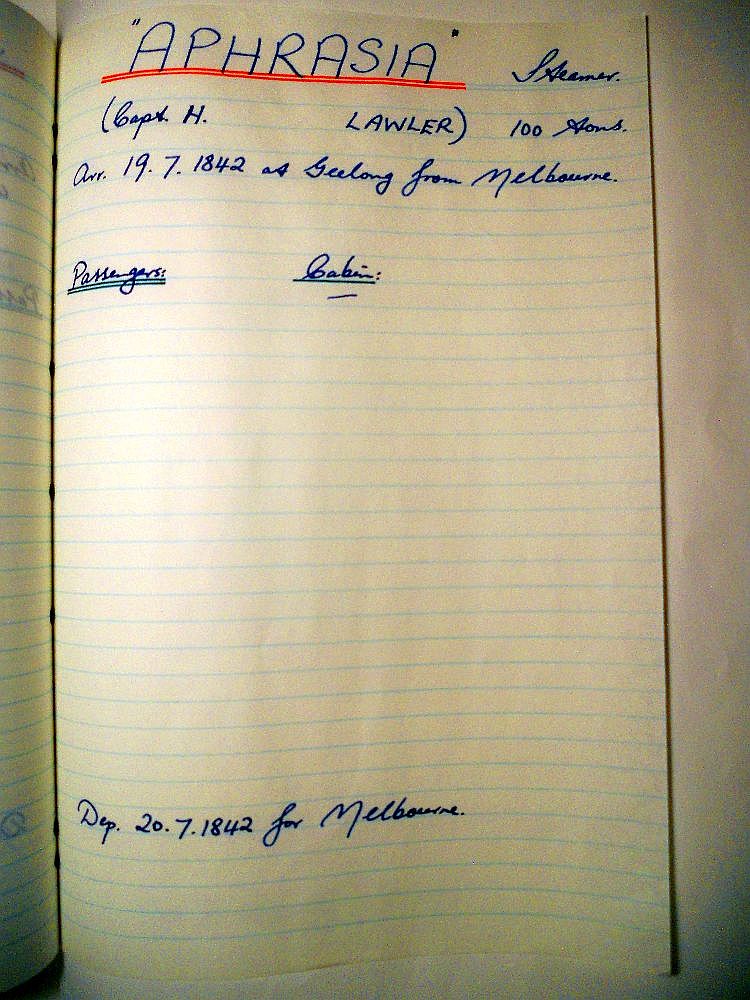 "APHRASIA" Steamer.
(Capt. H. LAWLER) 100 tons.
Arr. 19.7.1842 at Geelong from Melbourne.
Passengers: Cabin:
—
Dep. 20.7.1842 for Melbourne.